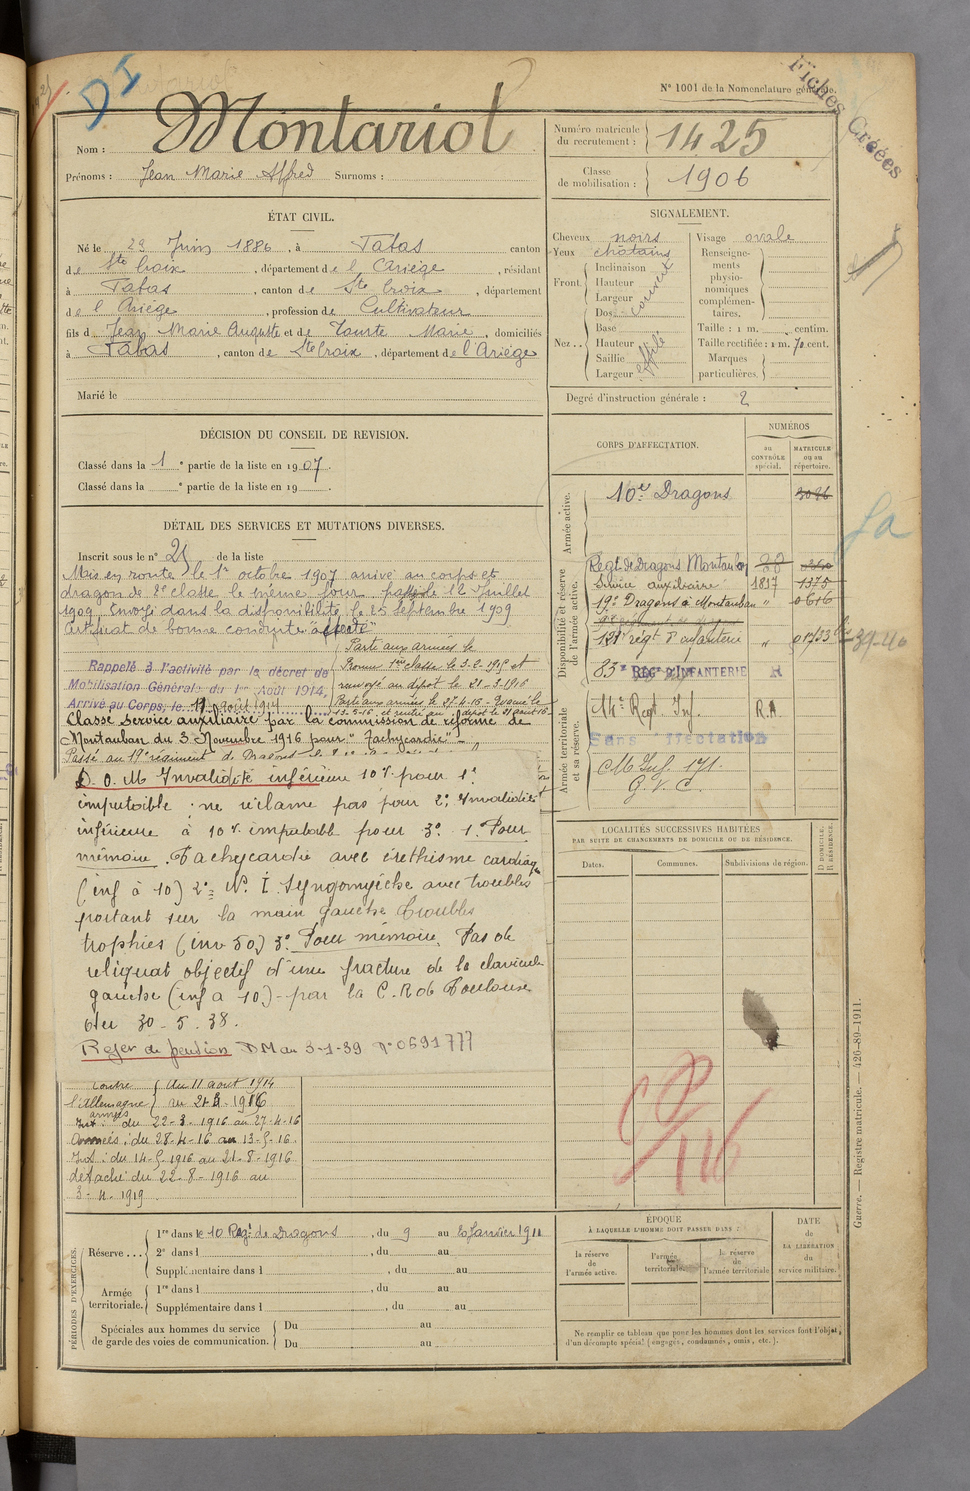 D I
N° 1001 de la Nomenclature générale.
Fiches Créées
Nom : Montariol
Prénoms : Jean Marie Alfred Surnoms :
Numéro matricule du recrutement : 1425
Classe de mobilisation : 1906
ÉTAT CIVIL.
Né le 23 Juin 1886, à Fabas canton
de Ste Croix, département de l'Ariège, résidant
à Fabas, canton de Ste Croix, département
de l'Ariège, profession de Cultivateur
fils de Jean Marie Auguste et de Tourte Marie, domiciliés
à Fabas, canton de Ste Croix, département de l'Ariège
Marié le
SIGNALEMENT.
Cheveux noirs
Yeux châtains
Front. Inclinaison
Hauteur
Largeur
Nez . . Dos
Base
Hauteur
Saillie
Largeur
Visage ovale
Renseignements physionomiques complémentaires.
Taille : 1 m. centim.
Taille rectifiée : 1 m. 70 cent.
Marques particulières.
Degré d'instruction générale : 2
DÉCISION DU CONSEIL DE REVISION.
Classé dans la 1e partie de la liste en 1907.
Classé dans la e partie de la liste en 19
DÉTAIL DES SERVICES ET MUTATIONS DIVERSES.
Inscrit sous le n° 25 de la liste
Mis en route le 1r octobre 1907 arrivé au corps et
dragon de 2e classe le même jour. passé le 12 Juillet
1909. Envoyé dans la disponibilité le 25 septembre 1909
Certificat de bonne conduite "accordé"
Rappelé à l'activité par le décret de
Mobilisation Générale du 1er Août 1914,
Arrivé au Corps, le 11 août 1914
Parti aux armées le
renvoyé au dépôt le 21-3-1916
Parti aux armées le 27-4-16 - Evacué le
13-5-16 et rentré au dépôt le 21 août 16
Classé Service auxiliaire par la commission de réforme de
Montauban du 3 Novembre 1916 pour "Tachycardie"
Passé au 19e régiment de Dragons
D. O. M Invalidité inférieure 10% pour 1°
imputable : ne réclame pas pour 2° Invalidité
inférieure à 10% imputable pour 3°. 1° Pour
mémoire. Tachycardie avec éréthisme cardiaque
(inf à 10) 2° N. I. Syngomyélie avec troubles
portant sur la main gauche Troubles
trophies (inv 50) 3° Pour mémoire. Pas de
reliquat objectif d'une fracture de la clavicule
gauche (inf à 10) - par la C. R de Toulouse
du 30 - 5 - 38.
Rejet de pension DM du 3-1-39 N° 0691777
contre l'Allemagne du 11 août 1914
au 21-3-1916
Int : du 22-3-1916 au 27-4-16
armées
Armées : du 28-4-16 au 13-5-16.
Int : du 14-5-1916 au 21-8-1916
détaché du 22-8-1916 au
3-4-1919.
CORPS D'AFFECTATION.
NUMÉROS
au CONTRÔLE spécial.
MATRICULE ou au répertoire.
Armée active.
10e Dragons 3086
Disponibilité et réserve de l'armée active.
Regt de Dragons Montauban
Service auxiliaire 1817 1375
19e Dragons à Montauban " 0616
121e régt d'infanterie "
83e REGt D'INFANTERIE R
Armée territoriale et sa réserve.
14e Regt. Inf. R.A
Sans affectation
CM Inf. 171.
G. V. C.
LOCALITÉS SUCCESSIVES HABITÉES
PAR SUITE DE CHANGEMENTS DE DOMICILE OU DE RÉSIDENCE.
Dates. Communes. Subdivisions de région.
D DOMICILE. R RÉSIDENCE.
116
PÉRIODES D'EXERCICES.
Réserve . . .
1re dans le 10 Régt de Dragons, du 9 au 20 Janvier 1911
2e dans l , du au
Supplémentaire dans l , du au
Armée territoriale.
1re dans l , du au
Supplémentaire dans l , du au
Spéciales aux hommes du service de garde des voies de communication.
Du au
Du au
ÉPOQUE
À LAQUELLE L'HOMME DOIT PASSER DANS :
la réserve de l'armée active.
l'armée territoriale.
la réserve de l'armée territoriale
DATE de LA LIBÉRATION du service militaire.
Ne remplir ce tableau que pour les hommes dont les services font l'objet
d'un décompte spécial (engagés, condamnés, omis, etc.).
Guerre. — Registre matricule. — 426-89-1911.